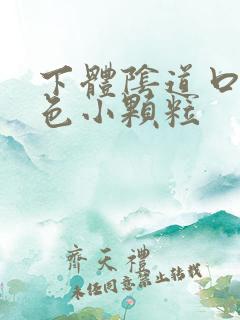 下體陰道口
色小顆粒
齊天禮
未经同意禁止转载